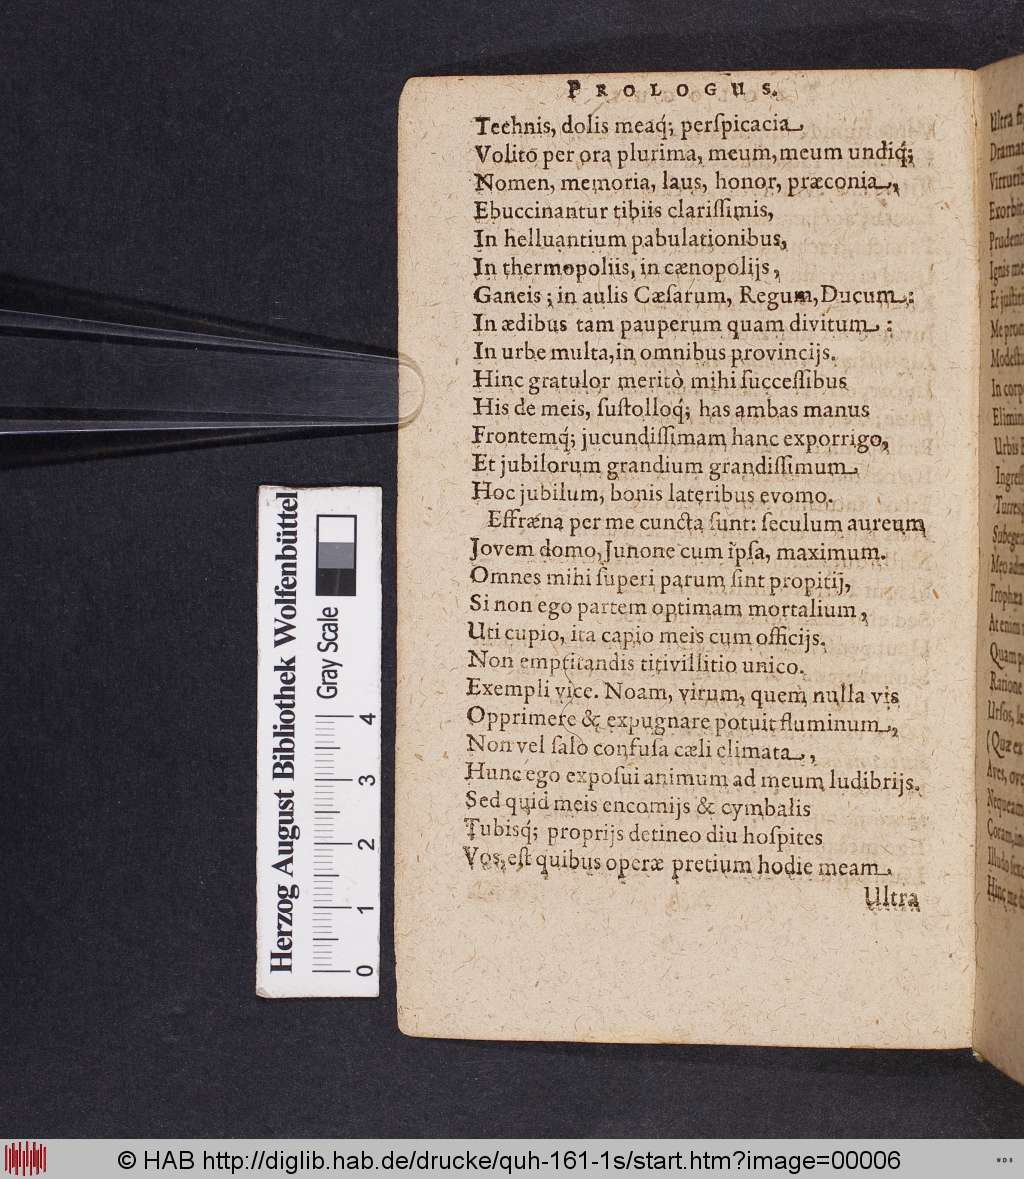 PROLOGUS.
Technis, dolis meaq́; perſpicacia
Volito per ora plurima, meum, meum undiq́;
Nomen, memoria, laus, honor, præconia,
Ebuccinantur tibiis clariſſimis,
In helluantium pabulationibus,
In thermopoliis, in cænopolijs,
Ganeis; in aulis Cæſarum, Regum, Ducum:
In ædibus tam pauperum quam divitum:
In urbe multa, in omnibus provincijs.
Hinc gratulor meritò mihi ſucceſſibus
His de meis, ſuſtolloq́; has ambas manus
Frontemq́; jucundiſſimam hanc exporrigo,
Et jubilorum grandium grandiſſimum
Hoc jubilum, bonis lateribus evomo.
Effræna per me cuncta ſunt: ſeculum aureum
Jovem domo, Junone cum ipſa, maximum.
Omnes mihi ſuperi parum ſint propitij,
Si non ego partem optimam mortalium,
Uti cupio, ita capio meis cum officijs.
Non emptitandis titivillitio unico.
Exempli vice. Noam, virum, quem nulla vis
Opprimere & expugnare potuit fluminum,
Non vel ſalo confuſa cæli climata,
Hunc ego expoſui animum ad meum ludibrijs.
Sed quid meis encomijs & cymbalis
Tubisq́; proprijs detineo diu hoſpites
Vos, eſt quibus operæ pretium hodie meam
Ultra
Ultra
Dramat
Virtutib
Exorbit
Prudent
Ignis me
Me proc
Modeſti
In corp
Elimin
Urbis
Ingreſſ
Turres
Subege
Meo adm
Trophæa
At enim
Quam p
Ratione
Urſos,
(Quæ ex
Aves, ove
Nequeam
Coram,
Illudo
Hinc me
Herzog August Bibliothek Wolfenbüttel
Gray Scale
0 1 2 3 4
© HAB http://diglib.hab.de/drucke/quh-161-1s/start.htm?image=00006